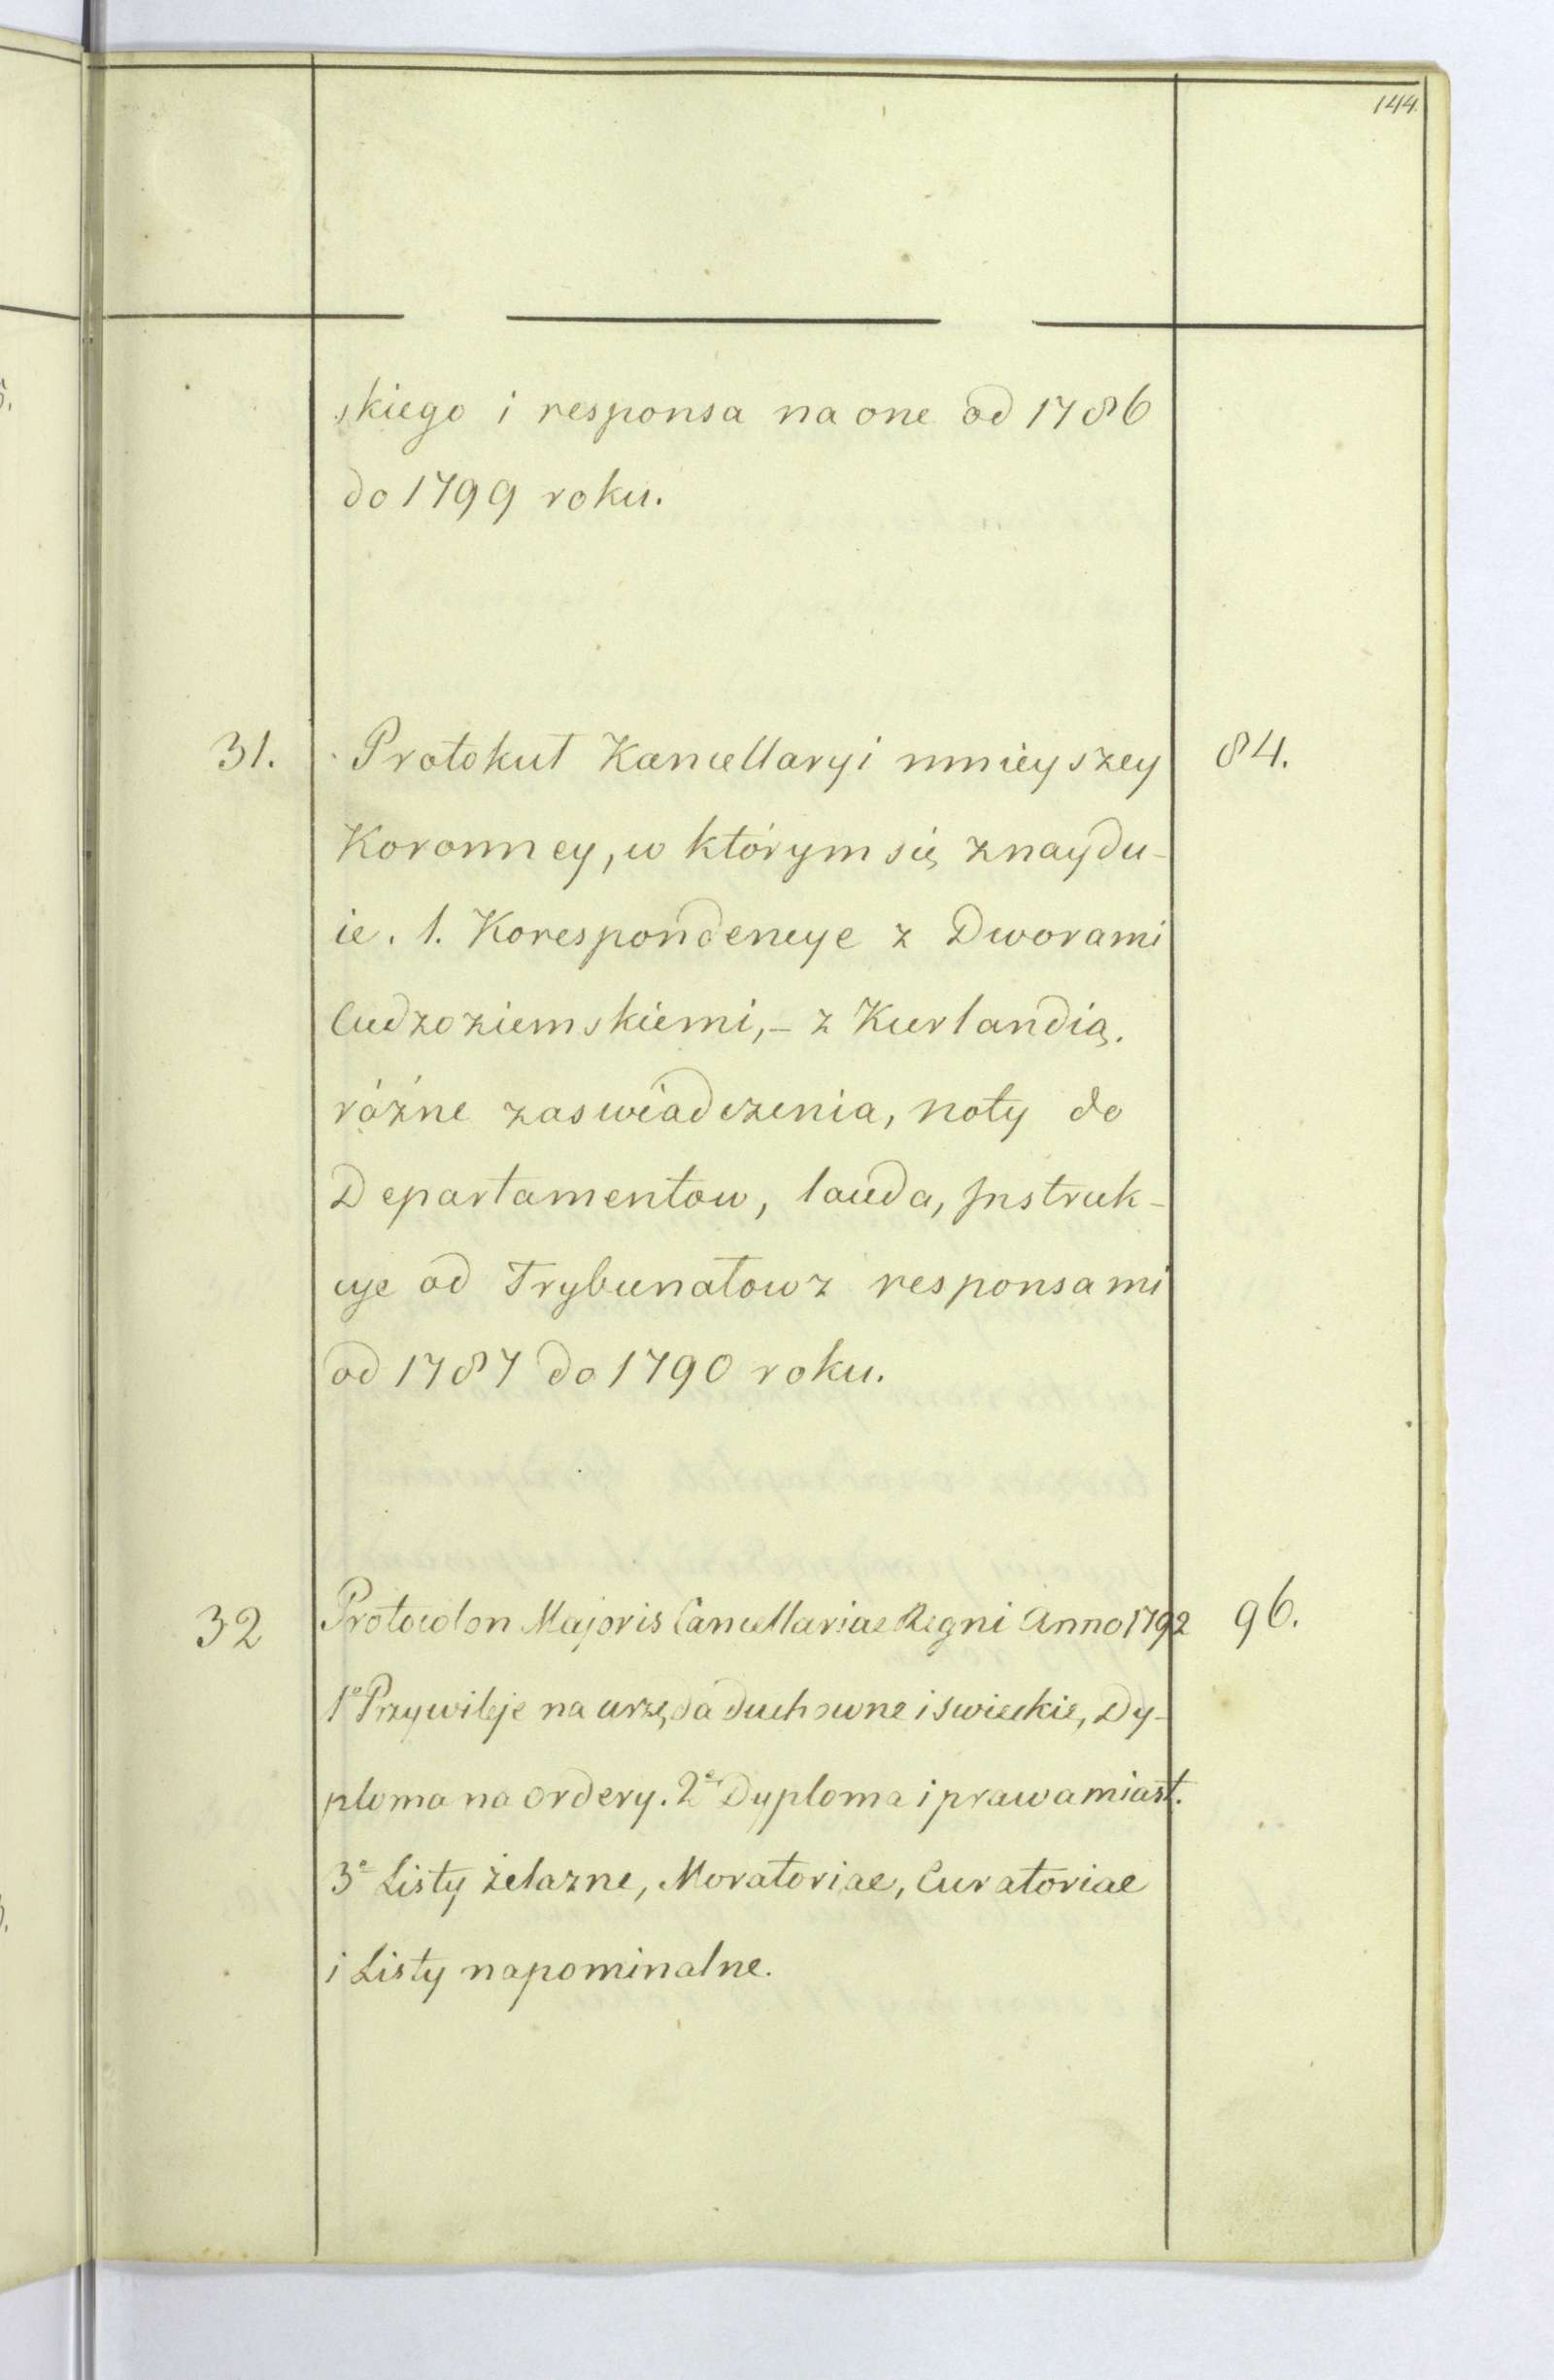 144.
skiego i responsa na one od 1786
do 1799 roku.
31. Protokuł Kancellaryi mnieyszey 84.
Koronney, w którym się znaydu-
ie. 1. Korespondencye z Dworami
Cudzoziemskiemi,- z Kurlandią.
różne zaswiadczenia, noty do
Departamentow, lauda, Instruk-
cye od Trybunałow z responsami
od 1787 do 1790 roku.
32 Protocolon Majoris Cancellariae Regni Anno 1792 96.
1º Przywileje na urzęda duchowne i swieckie, Dy-
ploma na ordery. 2º Dyploma i prawa miast.
3º Listy żelazne, Moratoriae, Curatoriae
i Listy napominalne.